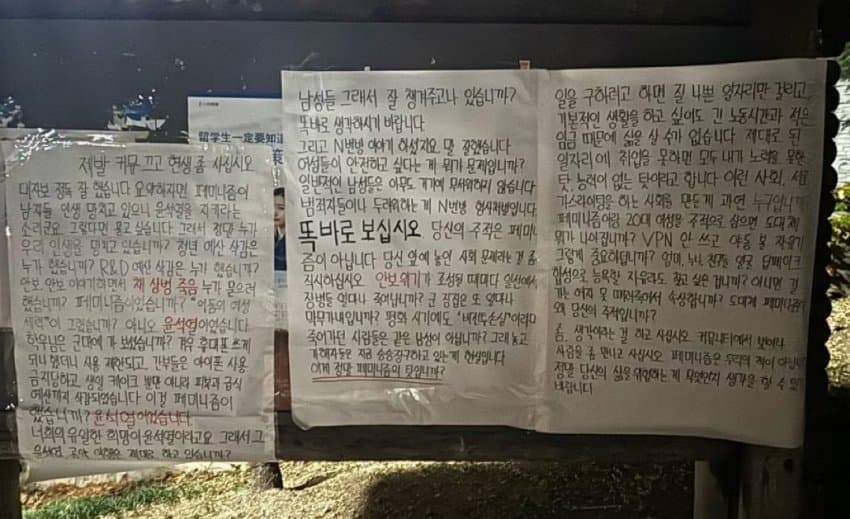 제발 커뮤 끄고 현생 좀 사십시오
대자보 정독 잘 했습니다 요약하자면, 페미니즘이
남자들 인생 망치고 있으니 윤석열을 지키라는
소리군요. 그렇다면 묻고 싶습니다. 그래서 정말 누가
우리 인생을 망치고 있습니까? 청년 예산 삭감은
누가 했습니까? R&D 예산 삭감은 누가 했습니까?
안보 안보 이야기하면서 채 상병 죽음 누가 묻으려
했습니까? 페미니즘이었습니까? "어둠의 여성
세력"이 그랬습니까? 아니오 윤석열이었습니다
하유님은 군대에 가 보셨습니까? 겨우 휴대폰 쓰게
되나 했더니 사용 제한되고, 간부들은 아이폰 사용
금지당하고, 생일 케이크 뿐만 아니라 피복과 급식
예산까지 삭감되었습니다 이걸 페미니즘이
했습니까? 윤석열이었습니다
너희의 유일한 희망이 윤석열이라고요. 그래서 그
윤석열, 제대로 하고 있습니까?
留学生一定要知道
남성들 그래서 잘 챙겨주고나 있습니까?
똑바로 생각하시기 바랍니다.
그리고 N번방 이야기 하셨지요. 말 잘했습니다
여성들이 안전하고 싶다는 게 뭐가 문제입니까?
일반적인 남성들은 아무도 거기에 무서워하지 않습니다
범죄자들이나 두려워하는 게 N번방 형사처벌입니다.
똑바로 보십시오 당신의 주적은 페미니
즘이 아닙니다. 당신 앞에 놓인 사회 문제라는 걸 좀
직시하십시오. 안보위기가 조성될 때마다 일선에서
장병들 얼마나 죽어납니까? 군 집집은 또 얼마나
마무가내입니까? 평화 시기에도 "비전투손실"이라며
죽어가던 사람들은 같은 남성이 아닙니까? 그래 놓고
가해자들은 지금 승승장구하고 있는 게 현실입니다
이게 정말 페미니즘의 탓입니까?
일을 구하려고 하면 질 나쁜 일자리만 걸리고
기본적인 생활을 하고 싶어도 긴 노동시간과 적은
임금 때문에 삶을 살 수가 없습니다 제대로 된
일자리에 취업을 못하면 모두 내가 노력을 못한
탓, 능력이 없는 탓이라고 합니다 이런 사회, 서로
가스라이팅을 하는 사회를 만든게 과연 누구입니까
페미니즘이랑 20대 여성을 주적으로 삼으면 도대체
뭐가 나아집니까? VPN 안 쓰고 야동 볼 자유가
그렇게 중요하답니까? 엄마, 누나, 친구들 얼굴 딥페이크
합성으로 능욕할 자유라도 찾고 싶은 겁니까? 아니면
가는 여자 못 때려죽여서 속상합니까? 도대체 페미니즘이
왜 당신의 주적입니까?
좀, 생각이라는 걸 하고 사십시오 커뮤니티에서 벗어나
사람을 좀 만나고 사십시오. 페미니즘은 우리의 적이 아닙니다
정말 당신의 삶을 위협하는 게 무엇인지 생각을 할 수 있
바랍니다